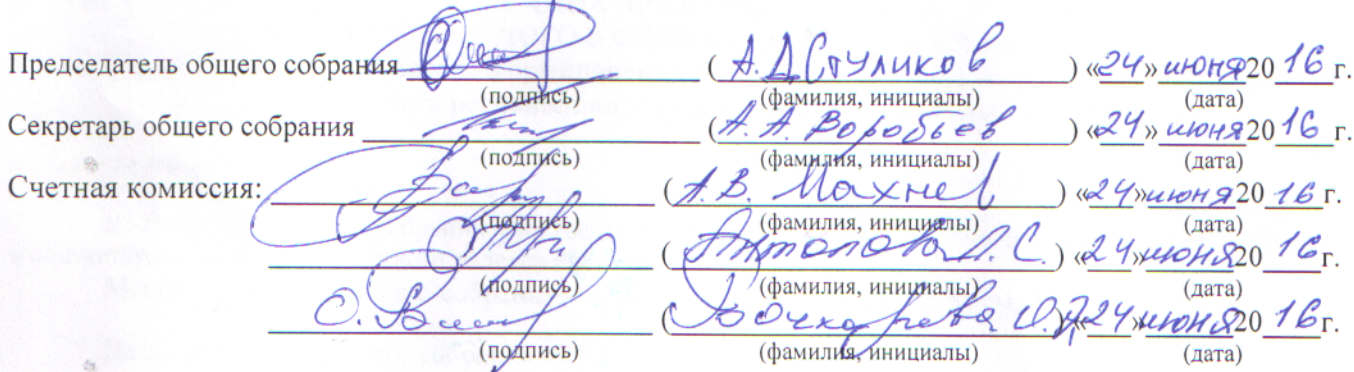 Председатель общего собрания (А.Д Стуликов) «24» июня 2016 г.
(подпись) (фамилия, инициалы) (дата)
Секретарь общего собрания (А. А. Воробьев) «24» июня 2016 г.
(подпись) (фамилия, инициалы) (дата)
Счетная комиссия: (А. В. Махнев) «24» июня 2016 г.
(подпись) (фамилия, инициалы) (дата)
(Антонова Л. С.) «24» июня 2016 г.
(подпись) (фамилия, инициалы) (дата)
(Бочкарева О. ) «24» июня 2016 г.
(подпись) (фамилия, инициалы) (дата)